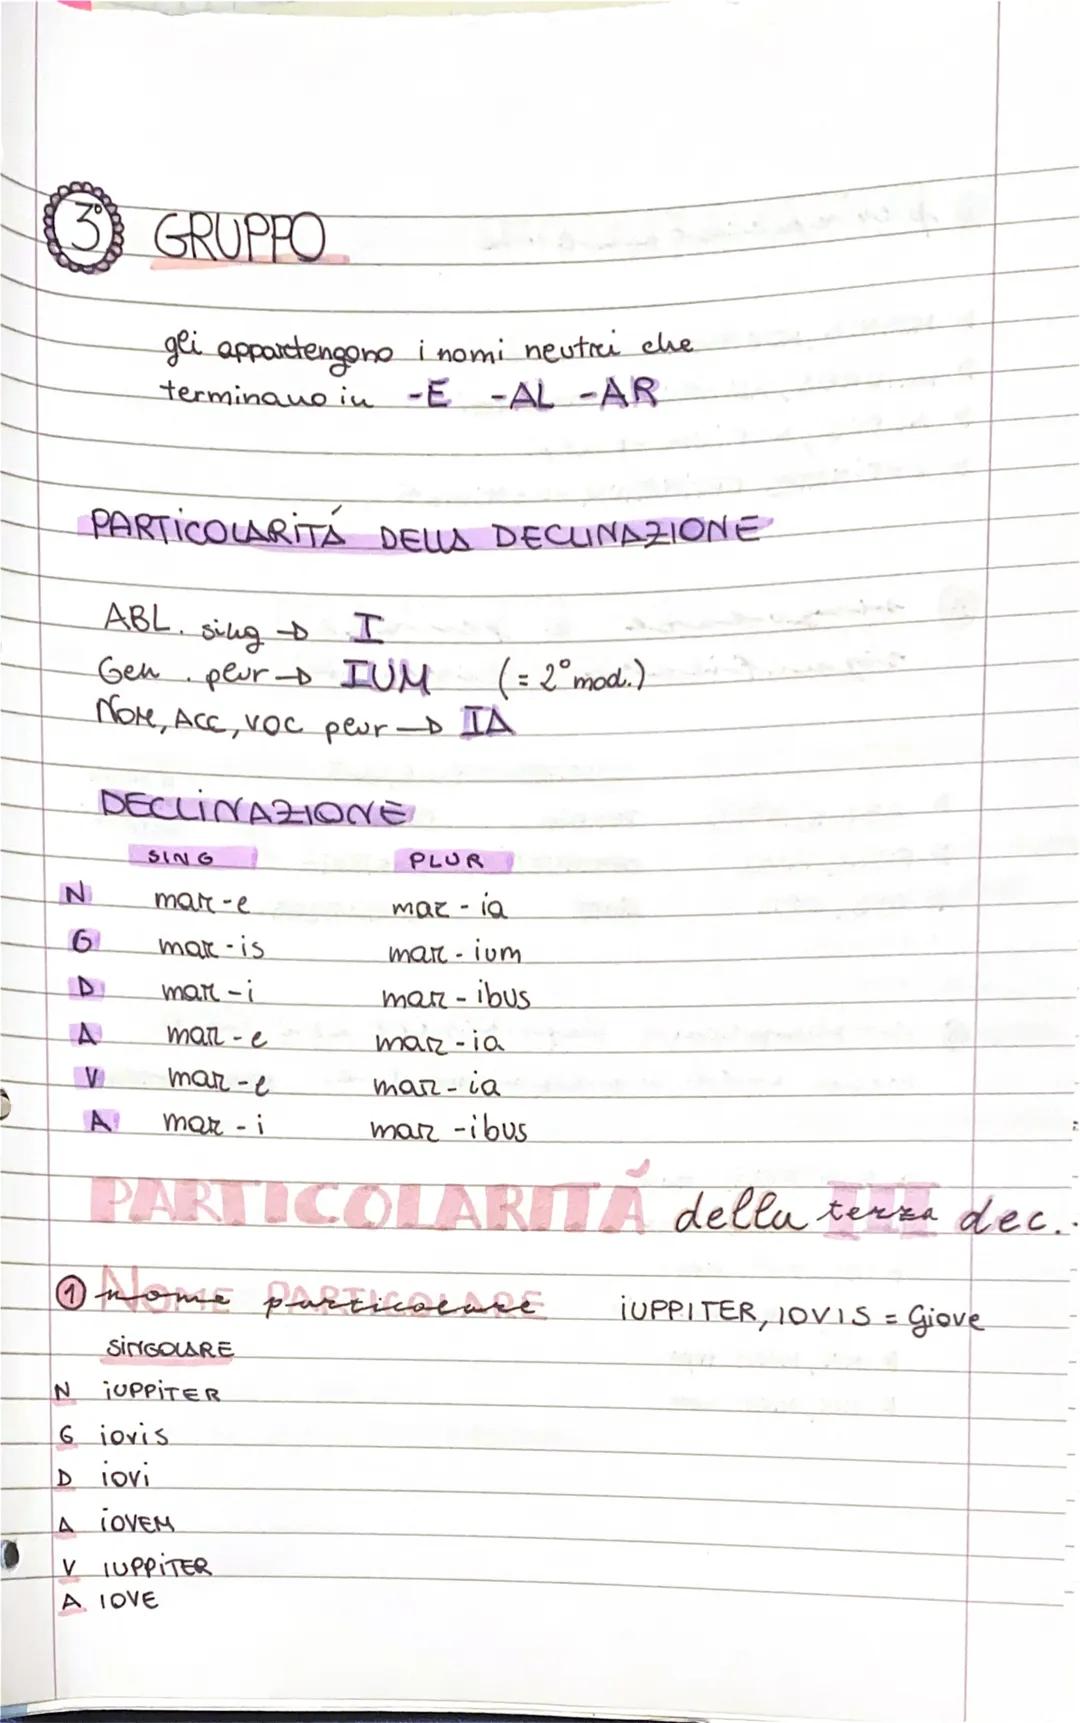 3° GRUPPO
gli appartengono i nomi neutri che
terminano in -E -AL -AR
PARTICOLARITÁ DELLA DECLINAZIONE
ABL. sing → I
Gen. plur → IUM (= 2° mod.)
NOM, ACC, VOC plur → IA
DECLINAZIONE
SING PLUR
N mar-e mar-ia
G mar-is mar-ium
D mar-i mar-ibus
A mar-e mar-ia
V mar-e mar-ia
A mar-i mar-ibus
PARTICOLARITÁ della terza III dec.
1 NOME PARTICOLARE nome particolare IUPPITER, IOVIS = Giove
SINGOLARE
N IUPPITER
G iovis
D iovi
A IOVEM
V IUPPITER
A IOVE